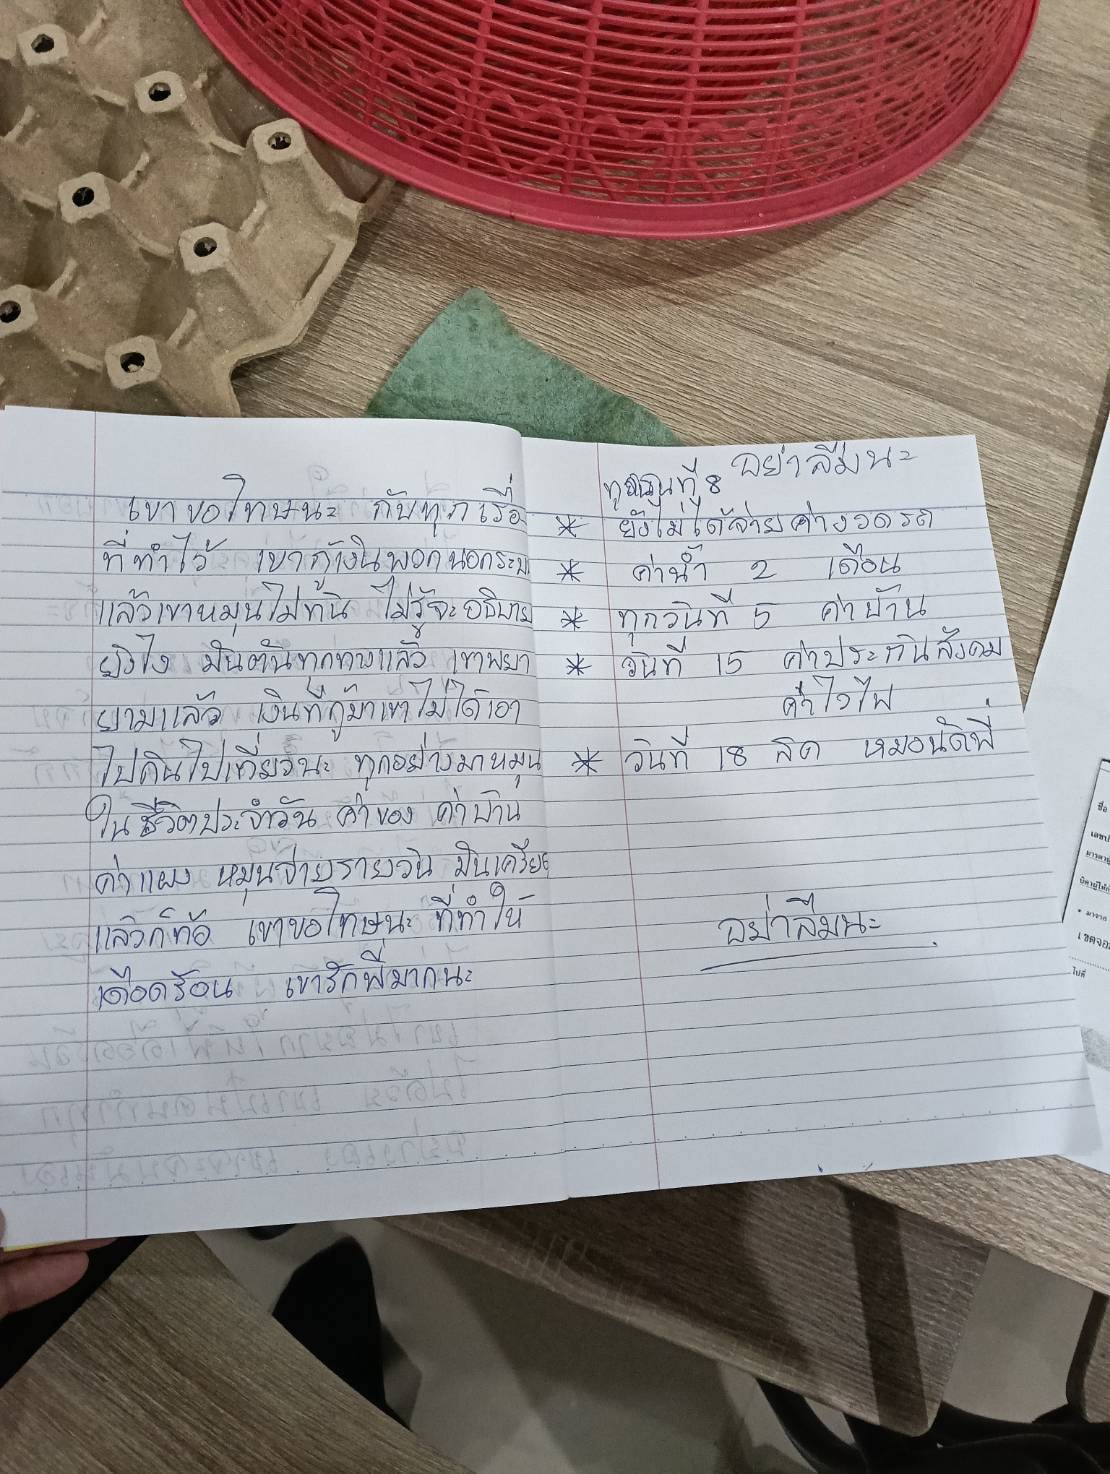 เขาขอโทษนะ กับทุกเรื่อ
ที่ทำไว้ เขากู้เงินพวกนอกระบ
แล้วเขาหมุนไม่ทัน ไม่รู้จะอธิบาย
ยังไง มันตันทุกทางแล้ว เขาพยา
ยามแล้ว เงินที่กู้มาเขาไม่ได้เอา
ไปกินไปเที่ยวนะ ทุกอย่างมาหมุน
ในชีวิตประจำวัน ค่าของ ค่าบ้าน
ค่าแผง หมุนจ่ายรายวัน มันเครีย
แล้วก็ท้อ เขาขอโทษนะ ที่ทำให้
เดือดร้อน เขารักพี่มากนะ
อย่าลืมนะ
ทุกวันที่ 8
* ยังไม่ได้จ่ายค่างวดรถ
* ค่าน้ำ 2 เดือน
* ทุกวันที่ 5 ค่าบ้าน
* วันที่ 15 ค่าประกันสังคม
ค่าไฟ
* วันที่ 18 หมอนัดพี่
อย่าลืมนะ
ชื่อ